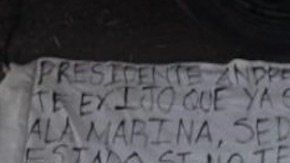 PRESIDENTE ANDRE
TE EXIJO QUE YA S
ALA MARINA, SED
ESTADO SI NO TE